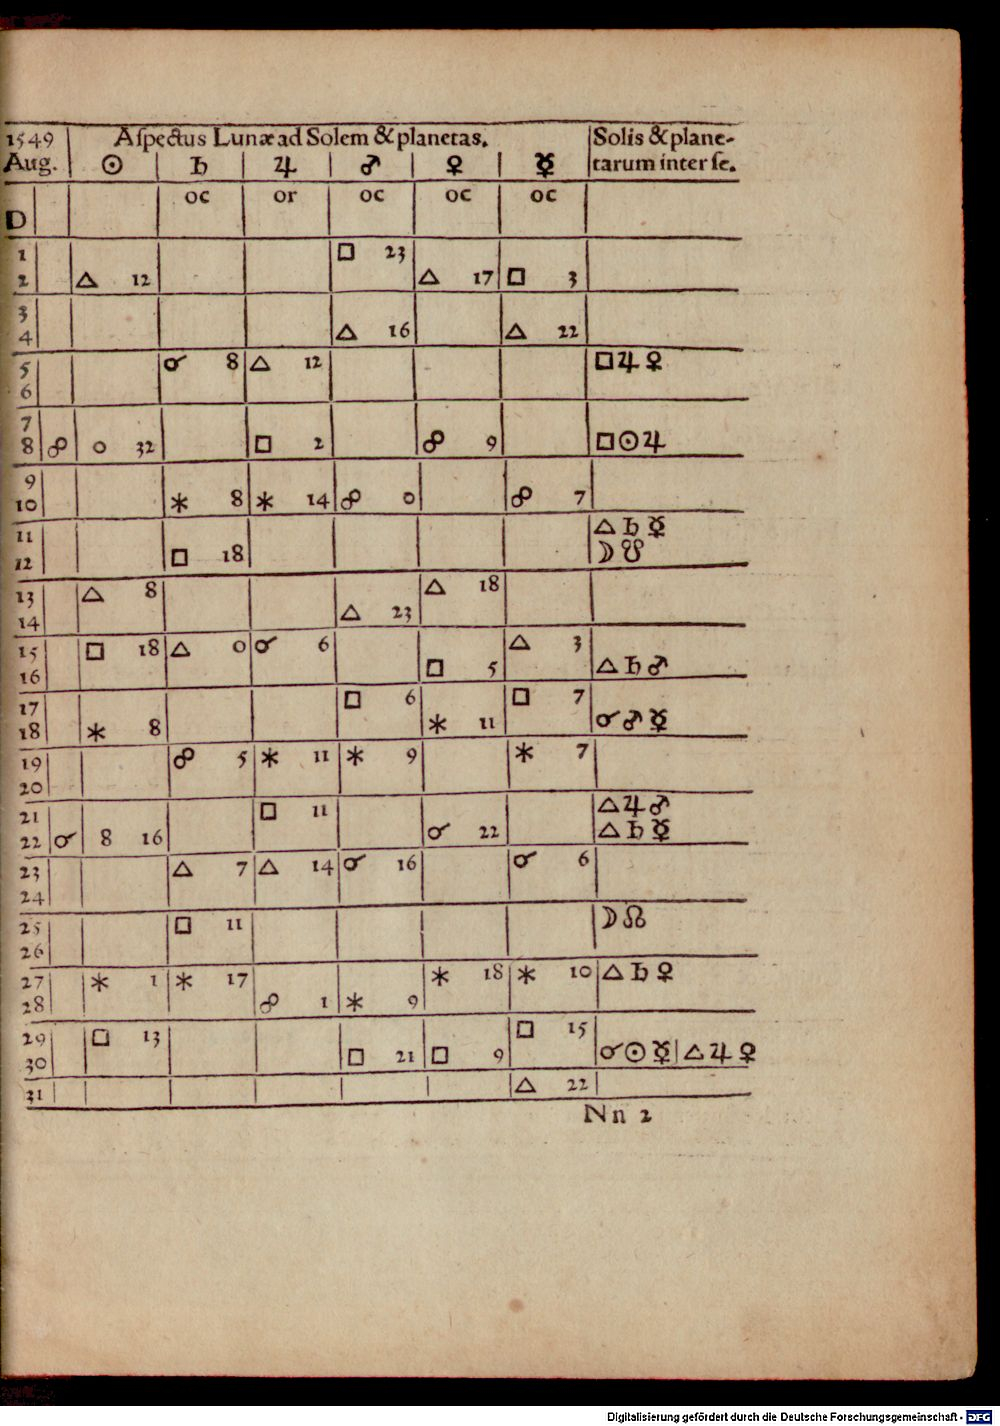 1549 Aſpectus Lunæ ad Solem & planetas. Solis & plane-
Aug. ☉ ♄ ♃ ♂ ♀ ☿ tarum inter ſe.
D oc or oc oc oc
1 □ 23
2 △ 12 △ 17 □ 3
3
4 △ 16 △ 22
5 ☌ 8 △ 12 □ ♃ ♀
6
7
8 ☍ 0 32 □ 2 ☍ 9 □ ☉ ♃
9
10 ⚹ 8 ⚹ 14 ☍ 0 ☍ 7
11 △ ♄ ☿
12 □ 18 ☽ ☋
13 △ 8 △ 18
14 △ 23
15 □ 18 △ 0 ☌ 6 △ 3
16 □ 5 △ ♄ ♂
17 □ 6 □ 7
18 ⚹ 8 ⚹ 11 ☌ ♂ ☿
19 ☍ 5 ⚹ 11 ⚹ 9 ⚹ 7
20
21 □ 11 △ ♃ ♂
22 ☌ 8 16 ☌ 22 △ ♄ ☿
23 △ 7 △ 14 ☌ 16 ☌ 6
24
25 □ 11 ☽ ☊
26
27 ⚹ 1 ⚹ 17 ⚹ 18 ⚹ 10 △ ♄ ♀
28 ☍ 1 ⚹ 9
29 □ 13 □ 15
30 □ 21 □ 9 ☌ ☉ ☿ | △ ♃ ♀
31 △ 22
Nn 2
Digitalisierung gefördert durch die Deutsche Forschungsgemeinschaft - DFG